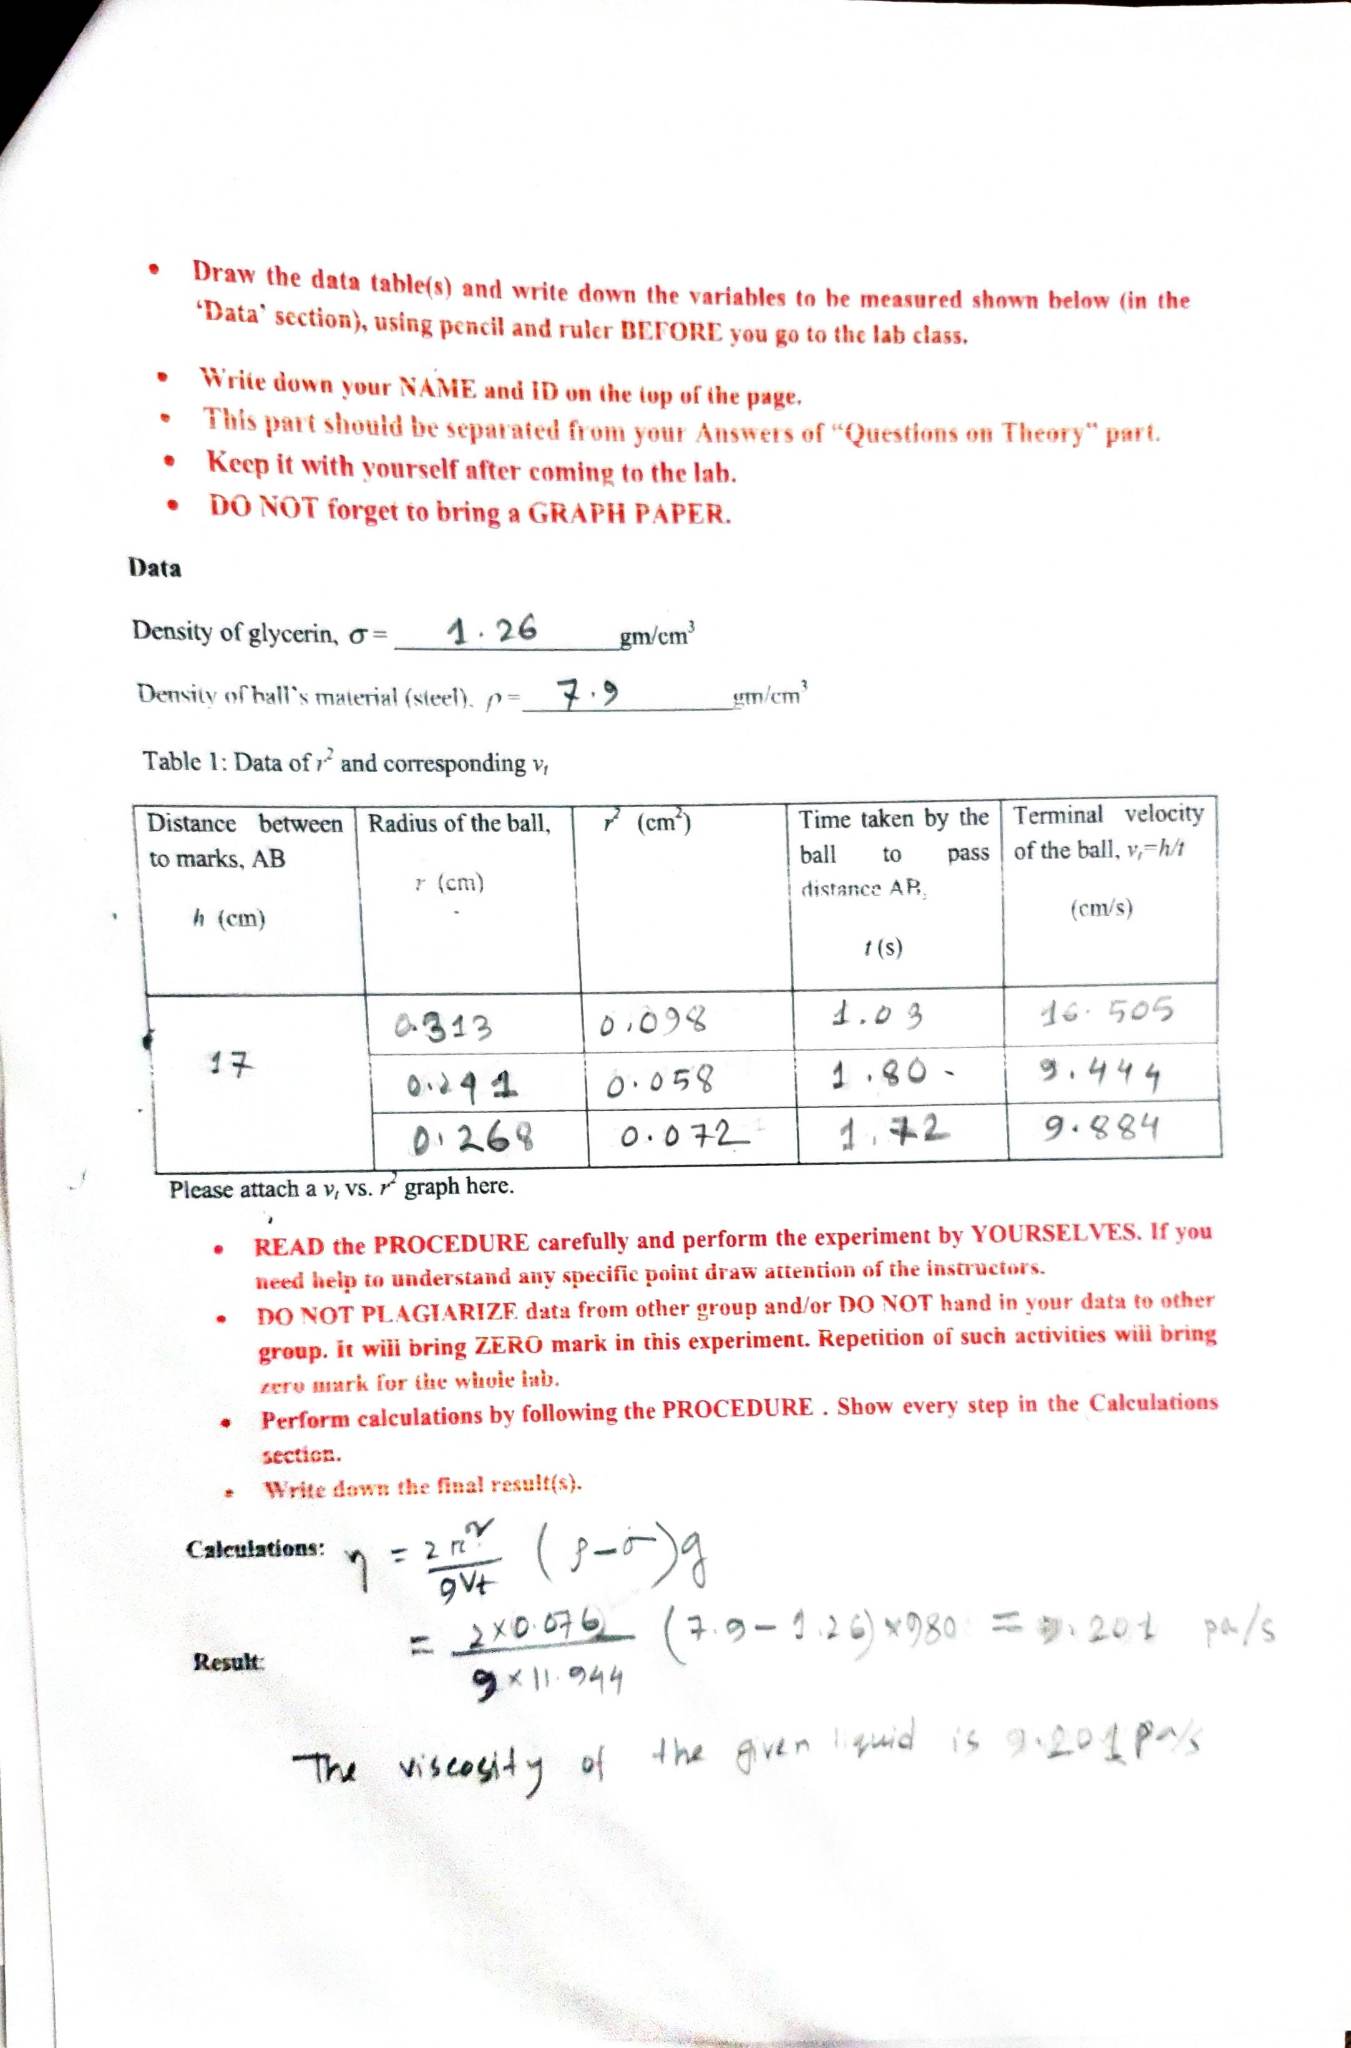 • Draw the data table(s) and write down the variables to be measured shown below (in the
‘Data’ section), using pencil and ruler BEFORE you go to the lab class.
• Write down your NAME and ID on the top of the page.
• This part should be separated from your Answers of “Questions on Theory” part.
• Keep it with yourself after coming to the lab.
• DO NOT forget to bring a GRAPH PAPER.
Data
Density of glycerin, σ = 1.26 gm/cm³
Density of ball's material (steel), ρ = 7.9 gm/cm³
Table 1: Data of r² and corresponding vₜ
Distance between Radius of the ball, r² (cm²) Time taken by the Terminal velocity
to marks, AB ball to pass of the ball, vₜ=h/t
r (cm) distance AB,
h (cm) (cm/s)
t (s)
0.313 0.098 1.03 16.505
17
0.241 0.058 1.80 9.444
0.268 0.072 1.72 9.884
Please attach a vₜ vs. r² graph here.
• READ the PROCEDURE carefully and perform the experiment by YOURSELVES. If you
need help to understand any specific point draw attention of the instructors.
• DO NOT PLAGIARIZE data from other group and/or DO NOT hand in your data to other
group. It will bring ZERO mark in this experiment. Repetition of such activities will bring
zero mark for the whole lab.
• Perform calculations by following the PROCEDURE . Show every step in the Calculations
section.
• Write down the final result(s).
Calculations: η = 2r²/9Vt (ρ-σ)g
= 2×0.076/9×11.944 (7.9-1.26)×980 = 9.201 pa/s
Result:
The viscosity of the given liquid is 9.201 pa/s